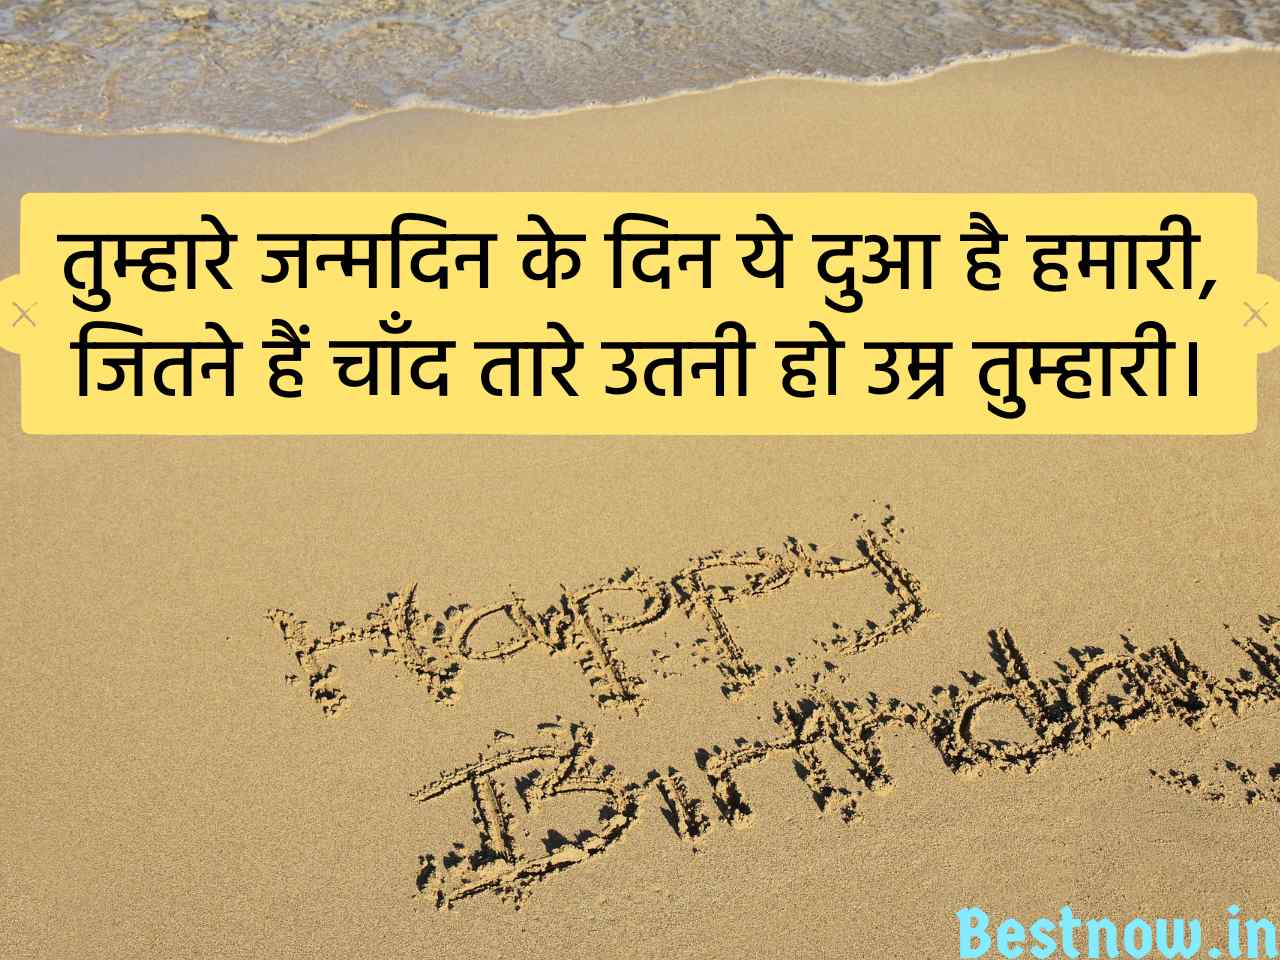 तुम्हारे जन्मदिन के दिन ये दुआ है हमारी,
जितने हैं चाँद तारे उतनी हो उम्र तुम्हारी।
Happy
Birthday
Bestnow.in